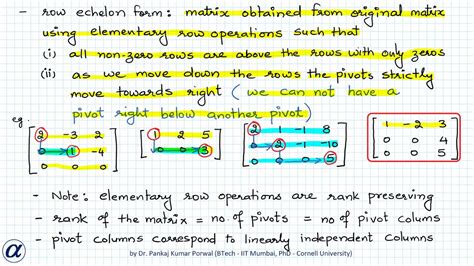 - row echelon form: matrix obtained from original matrix
using elementary row operations such that
(i) all non-zero rows are above the rows with only zeros
(ii) as we move down the rows the pivots strictly
move towards right (we can not have a
pivot right below another pivot)
eg
2 -3 2
0 1 -4
0 0 0
1 2 5
0 0 3
2 1 -1 8
0 2 -1 -10
0 0 0 5
1 -2 3
0 0 4
0 0 5
- Note: elementary row operations are rank preserving
- rank of the matrix = no. of pivots = no of pivot colums
- pivot columns correspond to linearly independent columns
α
by Dr. Pankaj Kumar Porwal (BTech - IIT Mumbai, PhD - Cornell University)